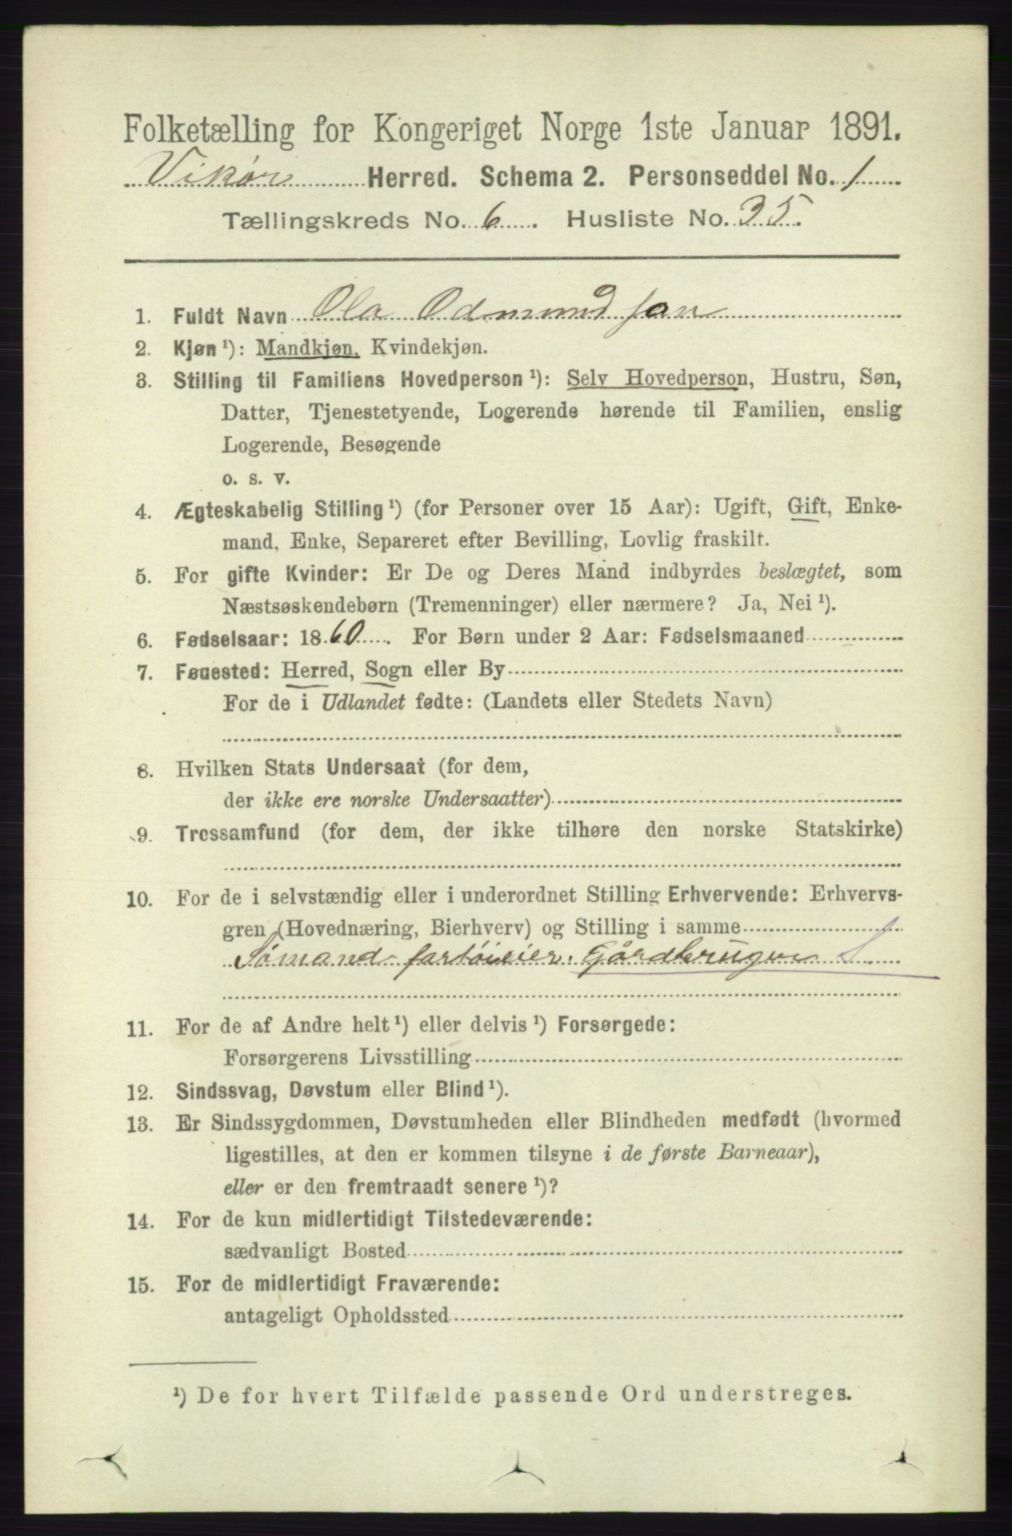 Folketælling for Kongeriget Norge 1ste Januar 1891.
Vikør Herred. Schema 2. Personseddel No. 1
Tællingskreds No. 6. Husliste No. 35.
1. Fuldt Navn Ola Odmundsson
2. Kjøn ¹): Mandkjøn, Kvindekjøn.
3. Stilling til Familiens Hovedperson ¹): Selv Hovedperson, Hustru, Søn,
Datter, Tjenestetyende, Logerende hørende til Familien, enslig
Logerende, Besøgende
o. s. v.
4. Ægteskabelig Stilling ¹) (for Personer over 15 Aar): Ugift, Gift, Enke-
mand, Enke, Separeret efter Bevilling, Lovlig fraskilt.
5. For gifte Kvinder: Er De og Deres Mand indbyrdes beslægtet, som
Næstsøskendebørn (Tremenninger) eller nærmere? Ja, Nei ¹).
6. Fødselsaar: 1860. For Børn under 2 Aar: Fødselsmaaned
7. Fødested: Herred, Sogn eller By
For de i Udlandet fødte: (Landets eller Stedets Navn)
8. Hvilken Stats Undersaat (for dem,
der ikke ere norske Undersaatter)
9. Trossamfund (for dem, der ikke tilhøre den norske Statskirke)
10. For de i selvstændig eller i underordnet Stilling Erhvervende: Erhvervs-
gren (Hovednæring, Bierhverv) og Stilling i samme
Sømand fartøieier. Gårdbruger S
11. For de af Andre helt ¹) eller delvis ¹) Forsørgede:
Forsørgerens Livsstilling
12. Sindssvag, Døvstum eller Blind ¹).
13. Er Sindssygdommen, Døvstumheden eller Blindheden medfødt (hvormed
ligestilles, at den er kommen tilsyne i de første Barneaar),
eller er den fremtraadt senere ¹)?
14. For de kun midlertidigt Tilstedeværende:
sædvanligt Bosted
15. For de midlertidigt Fraværende:
antageligt Opholdssted
¹) De for hvert Tilfælde passende Ord understreges.